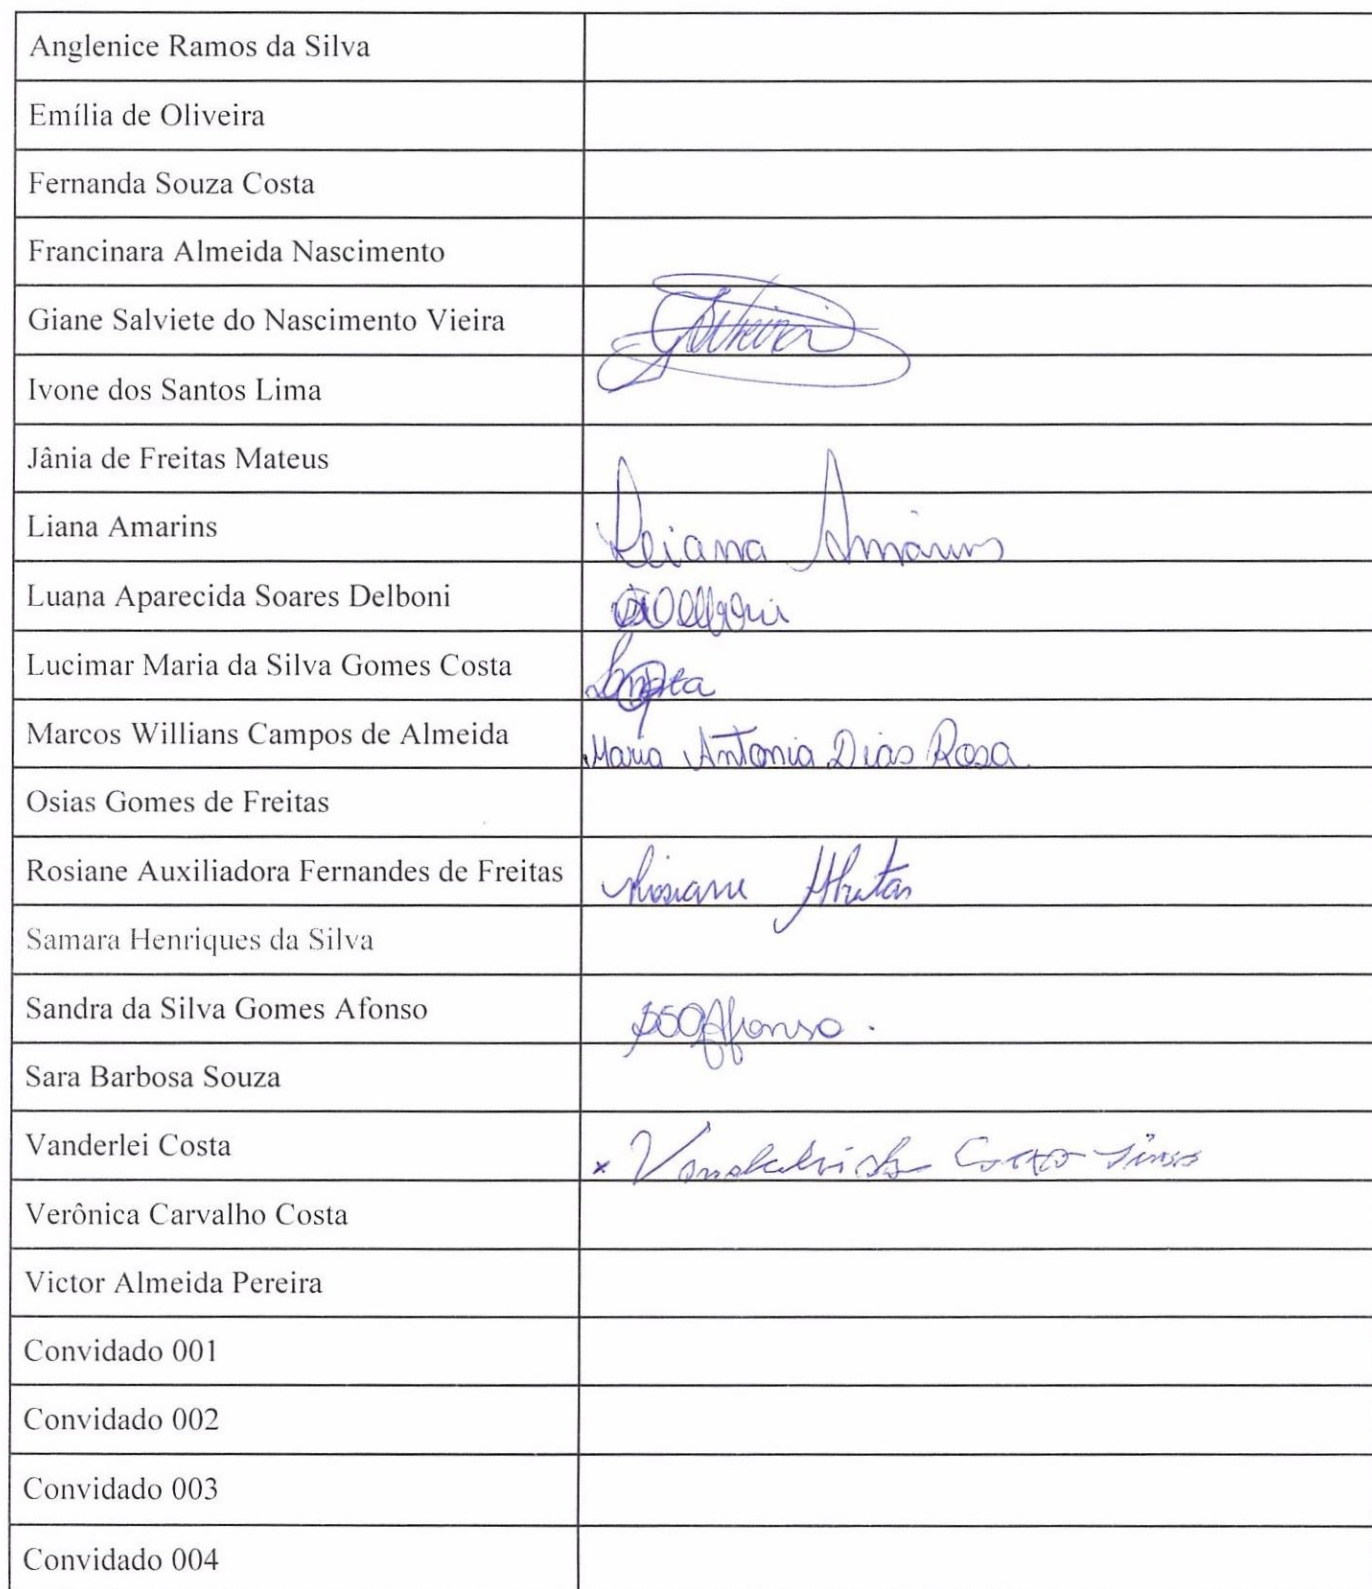 Anglenice Ramos da Silva
Emília de Oliveira
Fernanda Souza Costa
Francinara Almeida Nascimento
Giane Salviete do Nascimento Vieira
Ivone dos Santos Lima
Jânia de Freitas Mateus
Liana Amarins Leiana Amarins
Luana Aparecida Soares Delboni
Lucimar Maria da Silva Gomes Costa
Marcos Willians Campos de Almeida Maria Antonia Dias Rosa
Osias Gomes de Freitas
Rosiane Auxiliadora Fernandes de Freitas Rosiane
Samara Henriques da Silva
Sandra da Silva Gomes Afonso
Sara Barbosa Souza
Vanderlei Costa x
Verônica Carvalho Costa
Victor Almeida Pereira
Convidado 001
Convidado 002
Convidado 003
Convidado 004